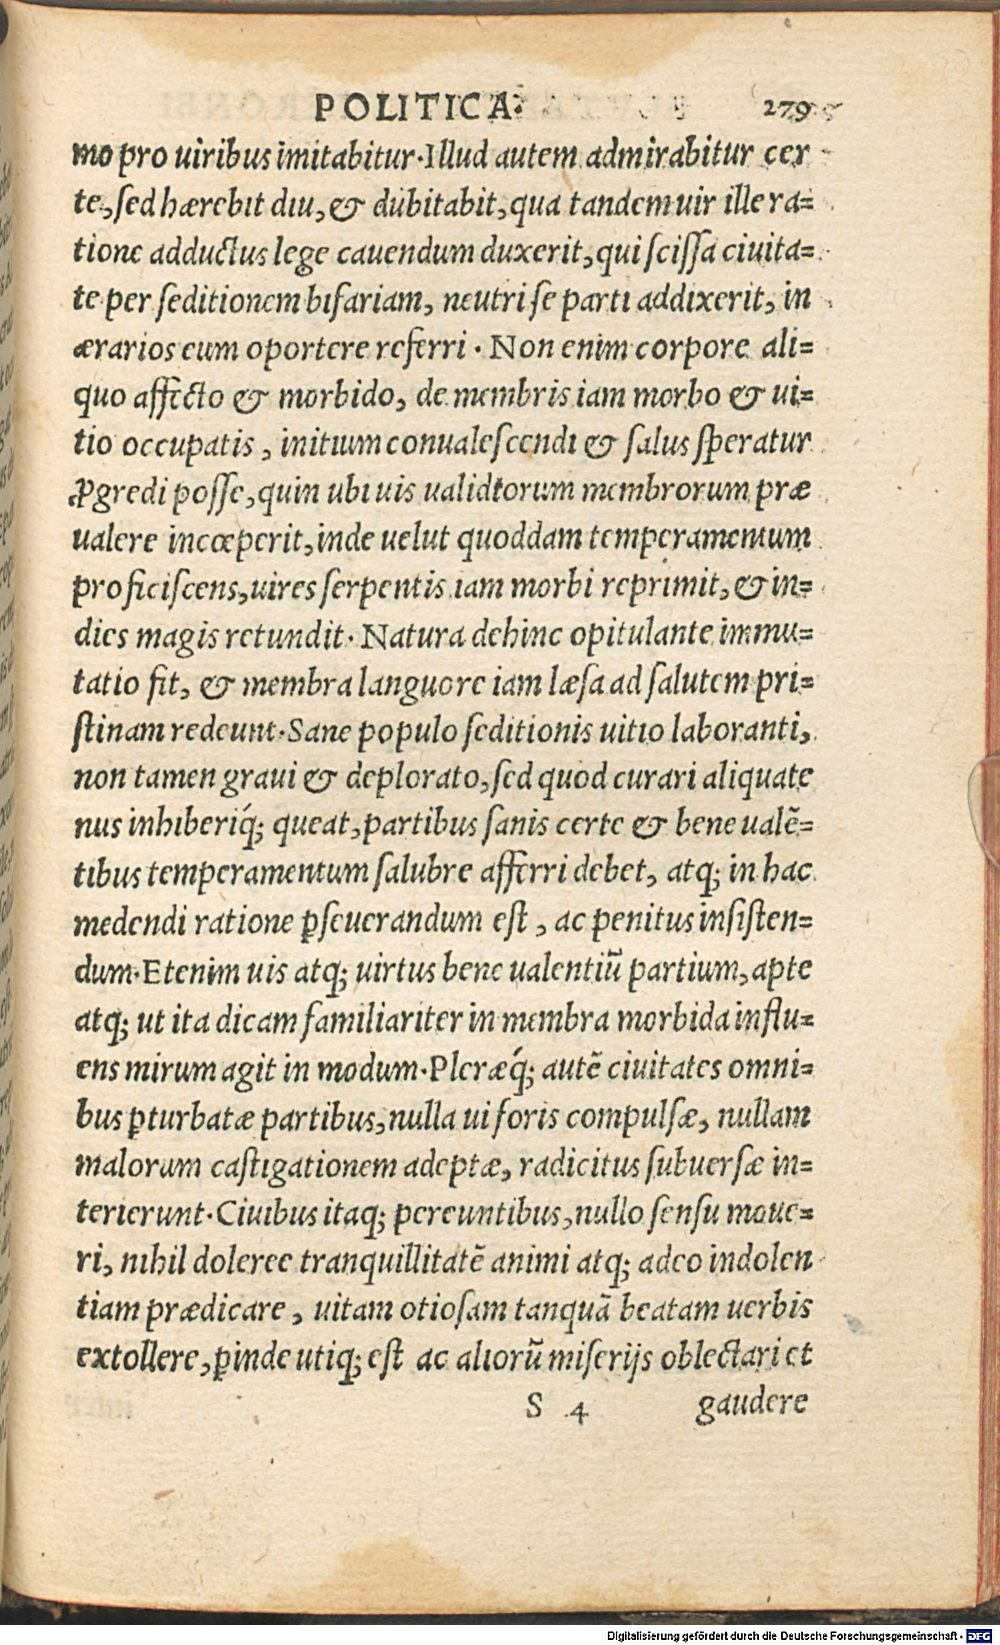 POLITICA. 279
mo pro uiribus imitabitur. Illud autem admirabitur cer
te, sed hærebit diu, & dubitabit, qua tandem uir ille ra=
tione adductus lege cauendum duxerit, qui scissa ciuita=
te per seditionem bifariam, neutri se parti addixerit, in
ærarios eum oportere referri. Non enim corpore ali=
quo affecto & morbido, de membris iam morbo & ui=
tio occupatis, initium conualescendi & salus speratur
ꝓgredi posse, quin ubi uis ualidiorum membrorum præ
ualere incœperit, inde uelut quoddam temperamentum
proficiscens, uires serpentis iam morbi reprimit, & in=
dies magis retundit. Natura dehinc opitulante immu=
tatio fit, & membra languore iam læsa ad salutem pri=
stinam redeunt. Sane populo seditionis uitio laboranti,
non tamen graui & deplorato, sed quod curari aliquate
nus inhiberiq́; queat, partibus sanis certe & bene ualẽ=
tibus temperamentum salubre afferri debet, atq; in hac
medendi ratione ꝑseuerandum est, ac penitus insisten=
dum. Etenim uis atq; uirtus bene ualentiũ partium, apte
atq; ut ita dicam familiariter in membra morbida influ=
ens mirum agit in modum. Pleræq́; autẽ ciuitates omni=
bus ꝑturbatæ partibus, nulla ui foris compulsæ, nullam
malorum castigationem adeptæ, radicitus subuersæ in=
terierunt. Ciuibus itaq; pereuntibus, nullo sensu moue=
ri, nihil dolere e tranquillitatẽ animi atq; adeo indolen
tiam prædicare, uitam otiosam tanquã beatam uerbis
extollere, ꝑinde utiq; est ac aliorũ miserijs oblectari et
S 4 gaudere
Digitalisierung gefördert durch die Deutsche Forschungsgemeinschaft - DFG